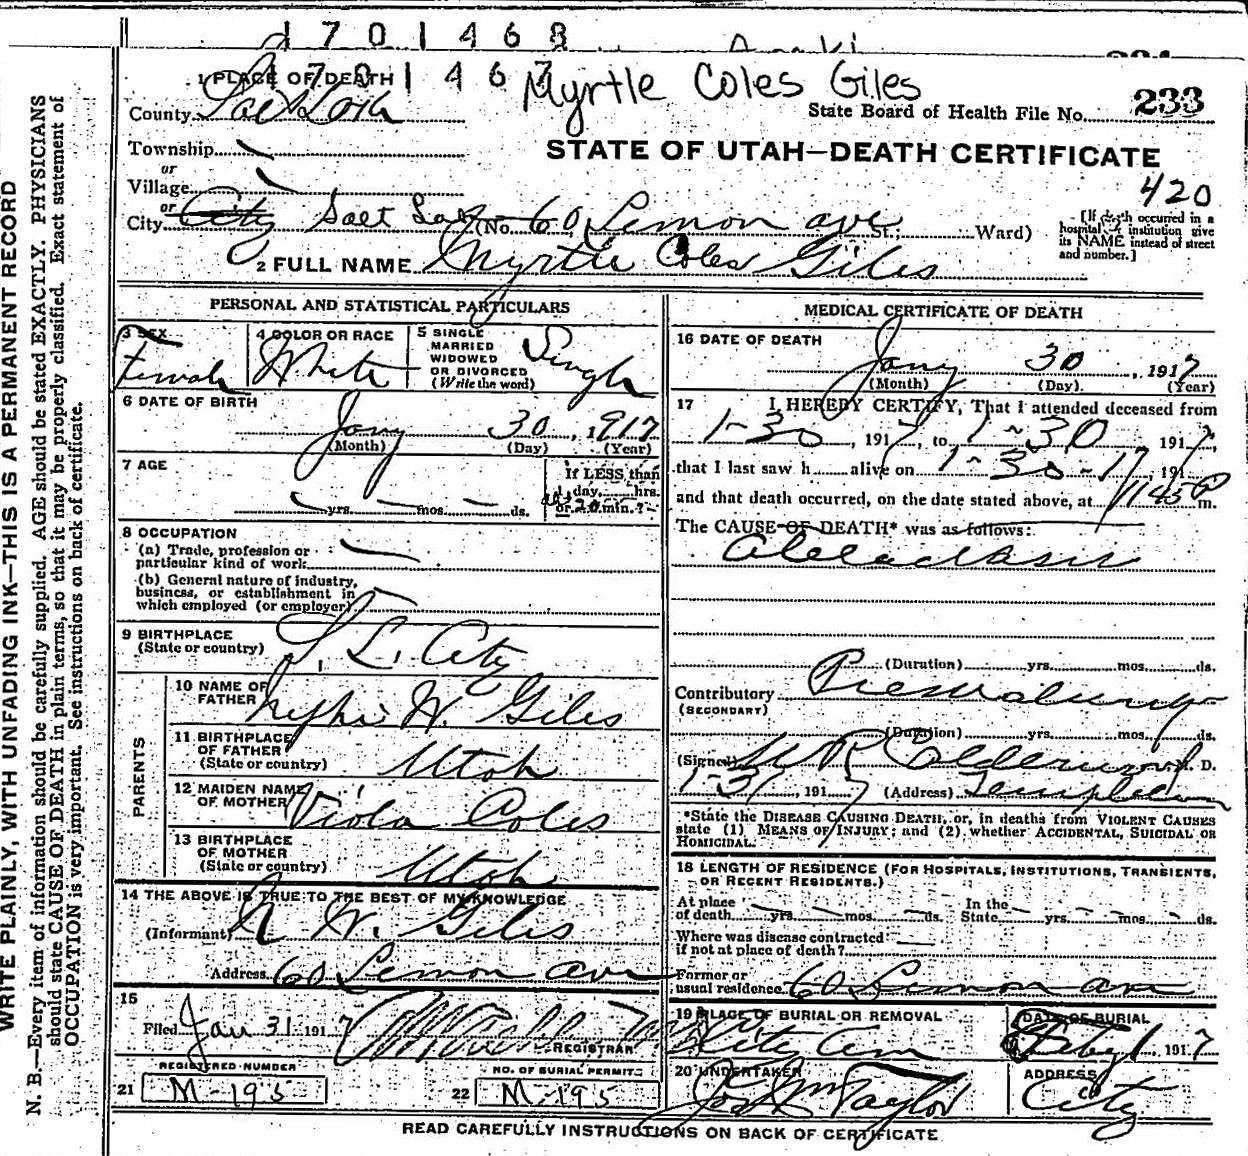 d 7 0 1 4 6 8
d 7 0 1 4 6 7
Myrtle Coles Giles
1 PLACE OF DEATH
County Salt Lake
State Board of Health File No. 233
STATE OF UTAH—DEATH CERTIFICATE
Township
or
Village
420
or
City City Salt Lake (No. 60 Lemon ave St.; Ward)
[If death occurred in a hospital or institution give its NAME instead of street and number.]
2 FULL NAME Myrtle Coles Giles
PERSONAL AND STATISTICAL PARTICULARS
3 SEX Female
4 COLOR OR RACE White
5 SINGLE MARRIED WIDOWED OR DIVORCED (Write the word) Single
6 DATE OF BIRTH
Jany 30, 1917
(Month) (Day) (Year)
7 AGE
If LESS than
1 day, hrs.
yrs. mos. ds. or 20 min.?
8 OCCUPATION
(a) Trade, profession or
particular kind of work
(b) General nature of industry,
business, or establishment in
which employed (or employer)
9 BIRTHPLACE
(State or country) S. L. City
PARENTS
10 NAME OF
FATHER W. Giles
11 BIRTHPLACE
OF FATHER
(State or country) Utah
12 MAIDEN NAME
OF MOTHER Viola Coles
13 BIRTHPLACE
OF MOTHER
(State or country) Utah
14 THE ABOVE IS TRUE TO THE BEST OF MY KNOWLEDGE
(Informant) W. Giles
Address 60 Lemon ave
15
Filed Jan 31 1917
REGISTRAR
REGISTERED NUMBER
21 M-195
NO. OF BURIAL PERMIT
22 M-195
MEDICAL CERTIFICATE OF DEATH
16 DATE OF DEATH
Jany 30, 1917
(Month) (Day) (Year)
17 I HEREBY CERTIFY, That I attended deceased from
1-30, 1917, to 1-30 1917,
that I last saw h alive on 1-30-17, 191
and that death occurred, on the date stated above, at 1145 P m.
The CAUSE OF DEATH* was as follows:
(Duration) yrs. mos. ds.
Contributory
(SECONDARY)
(Duration) yrs. mos. ds.
(Signed) M. D.
1-31, 1917 (Address) Templeton
*State the DISEASE CAUSING DEATH, or, in deaths from VIOLENT CAUSES
state (1) MEANS OF INJURY; and (2) whether ACCIDENTAL, SUICIDAL OR
HOMICIDAL.
18 LENGTH OF RESIDENCE (FOR HOSPITALS, INSTITUTIONS, TRANSIENTS,
OR RECENT RESIDENTS.)
At place In the
of death yrs. mos. ds. State yrs. mos. ds.
Where was disease contracted
if not at place of death?
Former or
usual residence 60 Lemon ave
19 PLACE OF BURIAL OR REMOVAL
City Cem
DATE OF BURIAL
Feby 1, 1917
20 UNDERTAKER
Jos Wm Taylor
ADDRESS
City
READ CAREFULLY INSTRUCTIONS ON BACK OF CERTIFICATE
WRITE PLAINLY, WITH UNFADING INK—THIS IS A PERMANENT RECORD
N. B.—Every item of information should be carefully supplied. AGE should be stated EXACTLY. PHYSICIANS
should state CAUSE OF DEATH in plain terms, so that it may be properly classified. Exact statement of
OCCUPATION is very important. See instructions on back of certificate.